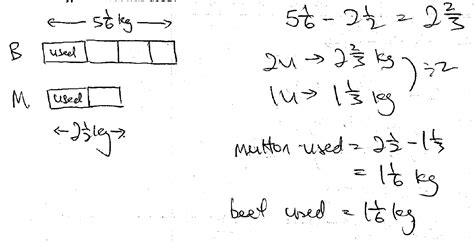 5 1/6 kg
B used
M used
2 1/2 kg
5 1/6 - 2 1/2 = 2 2/3
2u → 2 2/3 kg
÷2
1u → 1 1/3 kg
mutton used = 2 1/2 - 1 1/3
= 1 1/6 kg
beef used = 1 1/6 kg